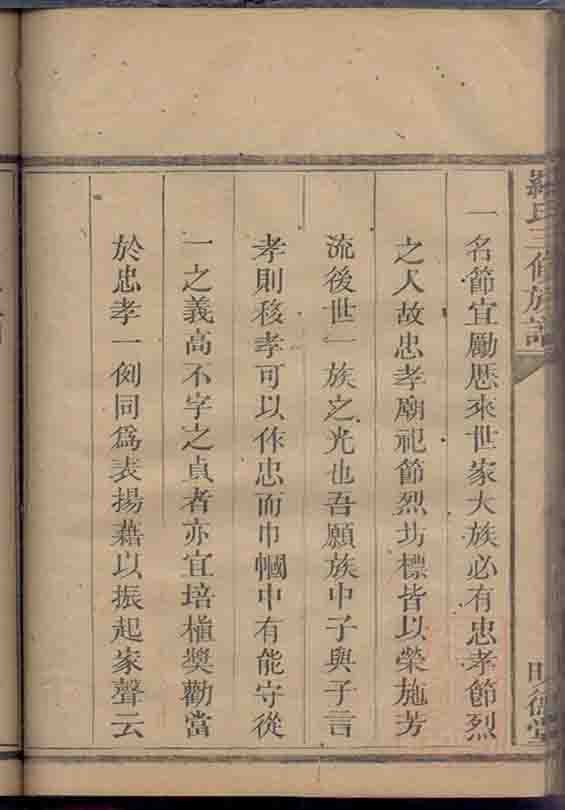 羅氏三修族譜
明德堂
一名節宜勵歷來世家大族必有忠孝節烈
之人故忠孝廟祀節烈坊標皆以榮施芳
流後世一族之光也吾願族中子與子言
孝則移孝可以作忠而巾幗中有能守從
一之義高不字之貞者亦宜培植獎勸當
於忠孝一例同爲表揚藉以振起家聲云